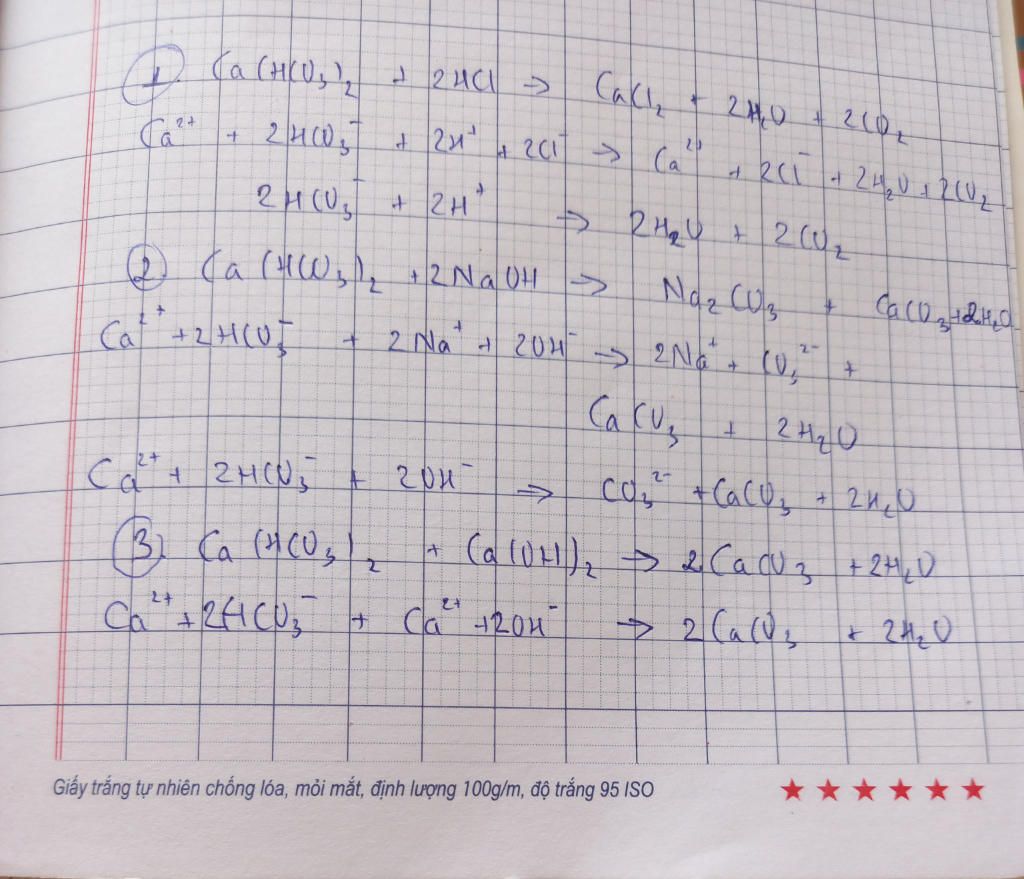 1 Ca(HCO₃)₂ + 2HCl → CaCl₂ + 2H₂O + 2CO₂
Ca²⁺ + 2HCO₃⁻ + 2H⁺ + 2Cl⁻ → Ca²⁺ + 2Cl⁻ + 2H₂O + 2CO₂
2HCO₃⁻ + 2H⁺ → 2H₂O + 2CO₂
2 Ca(HCO₃)₂ + 2NaOH → Na₂CO₃ + CaCO₃ + 2H₂O
Ca²⁺ + 2HCO₃⁻ + 2Na⁺ + 2OH⁻ → 2Na⁺ + CO₃²⁻ +
CaCO₃ + 2H₂O
Ca²⁺ + 2HCO₃⁻ + 2OH⁻ → CO₃²⁻ + CaCO₃ + 2H₂O
3) Ca(HCO₃)₂ + Ca(OH)₂ → 2CaCO₃ + 2H₂O
Ca²⁺ + 2HCO₃⁻ + Ca²⁺ + 2OH⁻ → 2CaCO₃ + 2H₂O
Giấy trắng tự nhiên chống lóa, mỏi mắt, định lượng 100g/m, độ trắng 95 ISO ★ ★ ★ ★ ★ ★